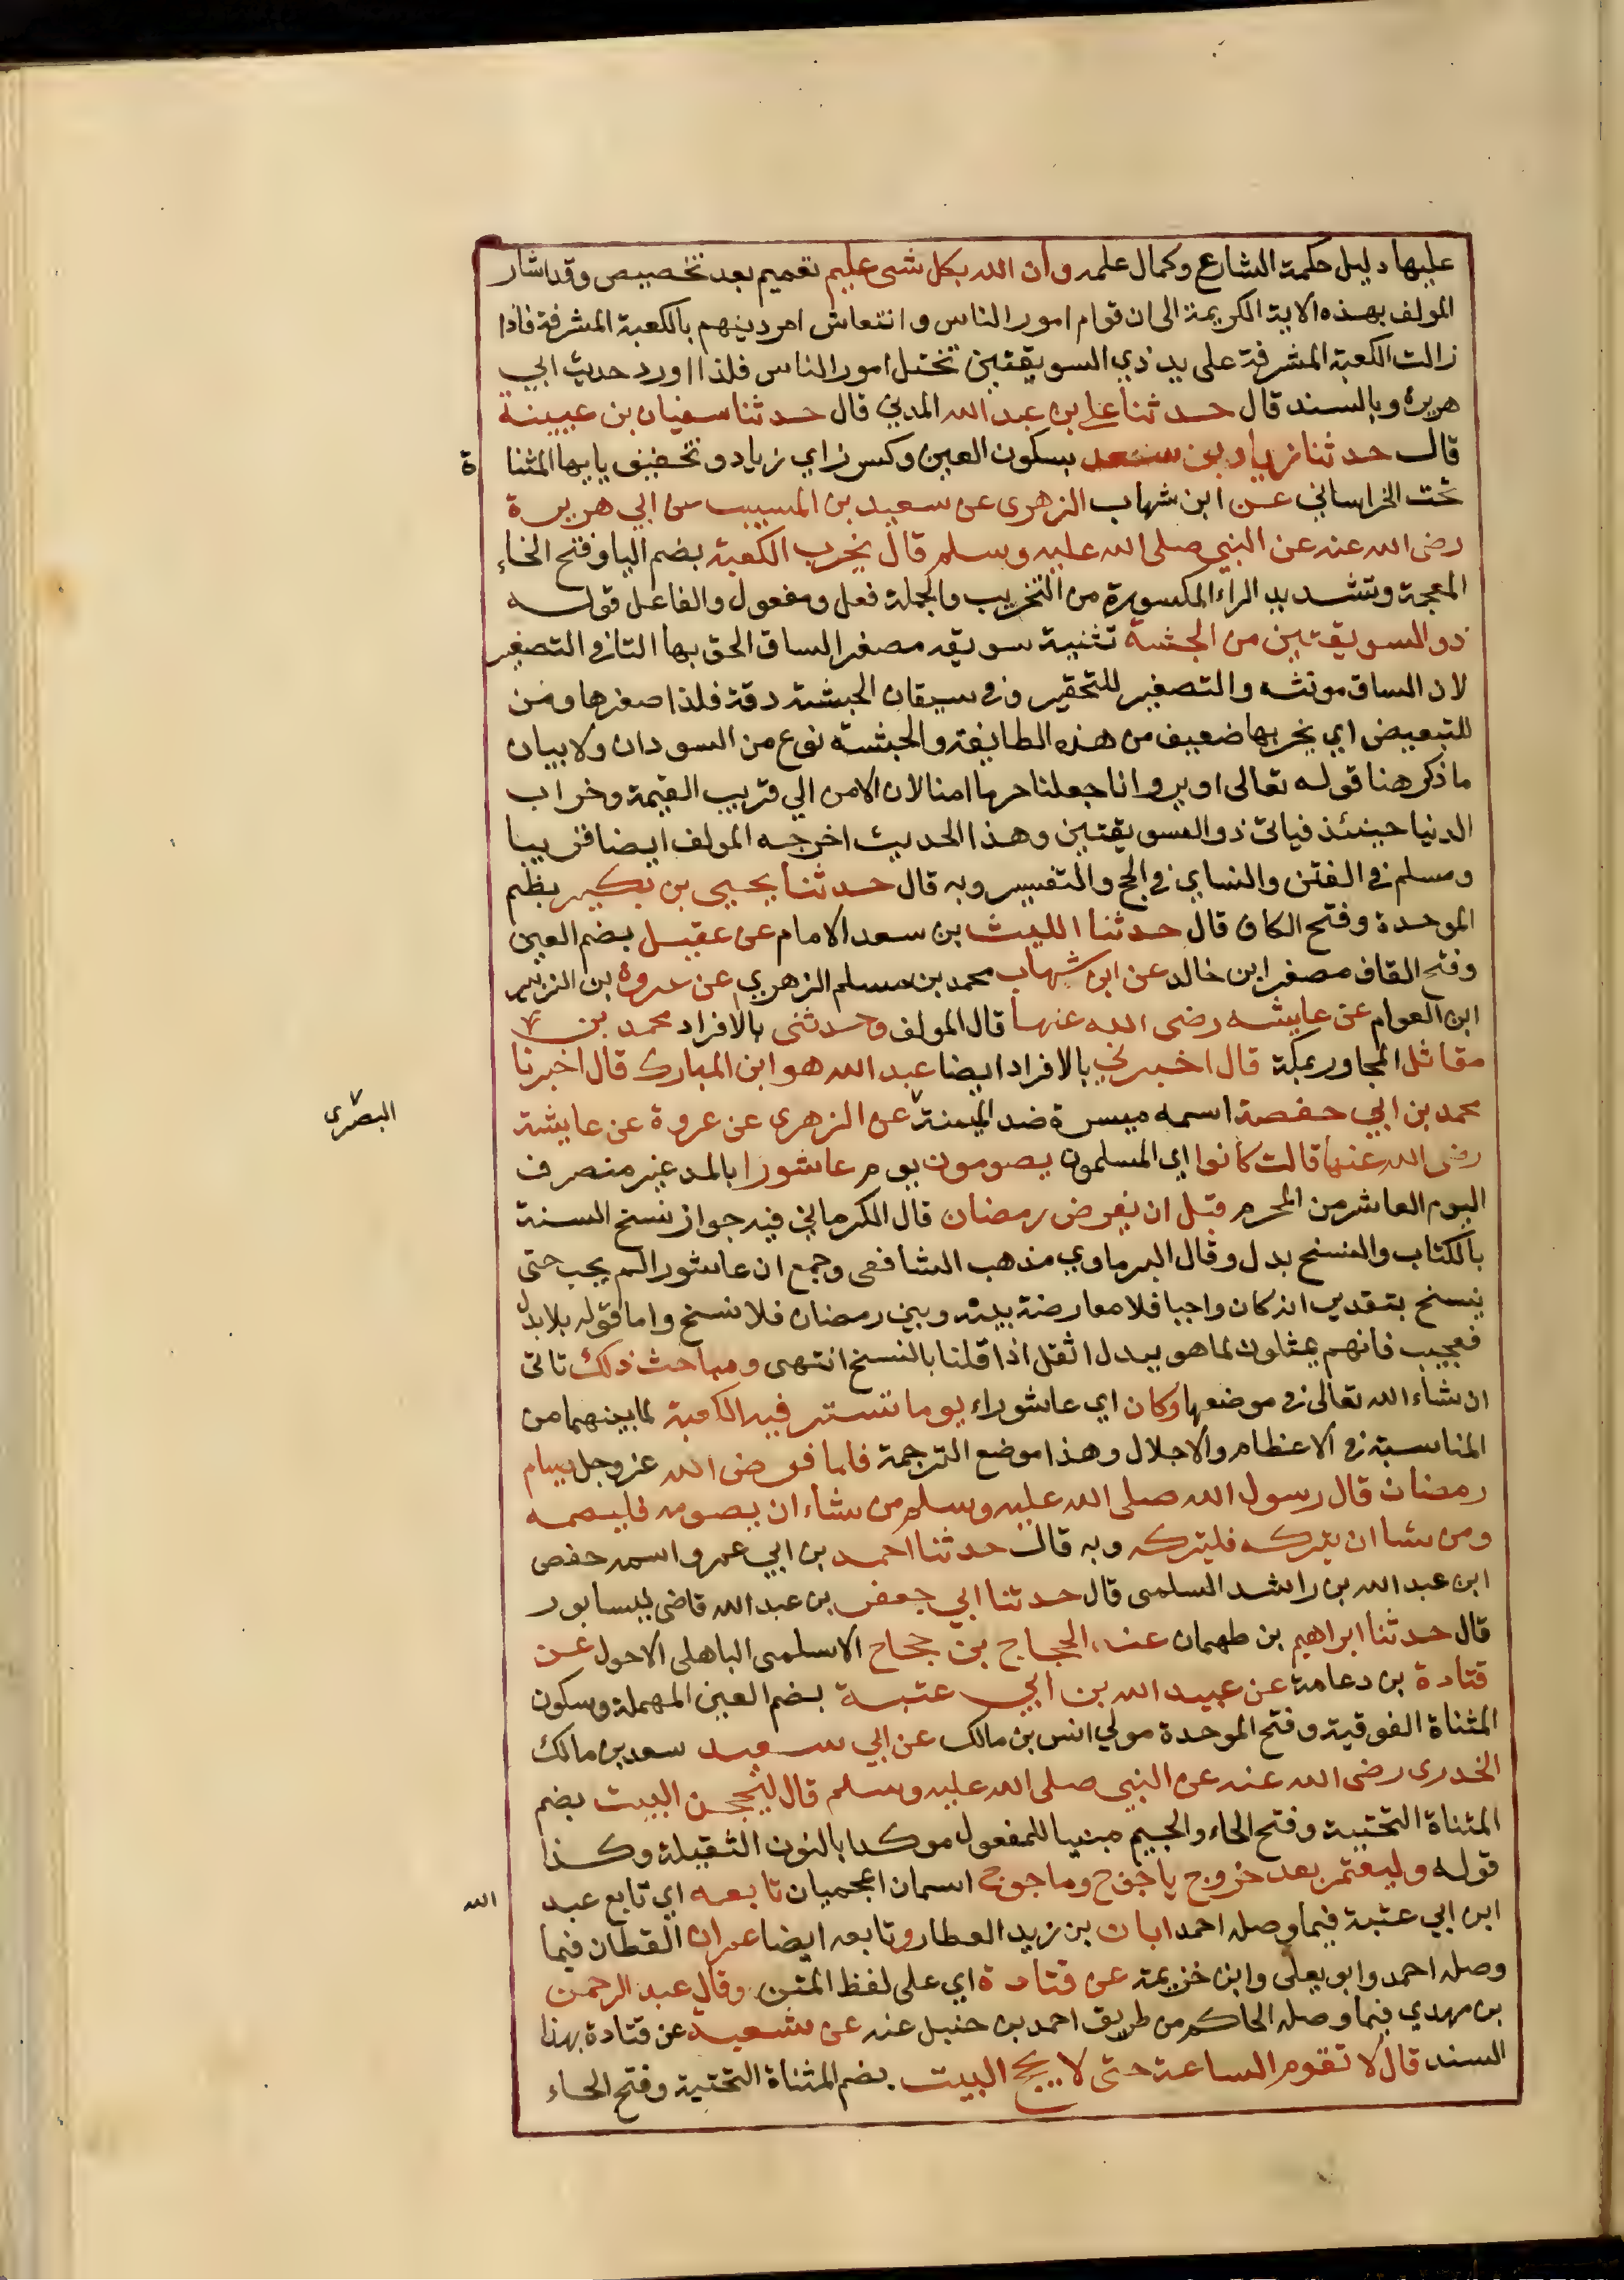 عليها دليل حكمة الشارع وكمال علمه وان الله بكل شى عليم تعميم بعد تخصيص وقد اشار
المولف بهذه الاية الكريمة الى ان قوام امور الناس وانتعاش امر دينهم بالكعبة المشرفة فاذا
زالت الكعبة المشرفة على يد ذي السويقتين تختل امور الناس فلذا اورد حديث ابي
هريرة وبالسند قال حدثنا علي بن عبد الله المديني قال حدثنا سفيان بن عيينة
قال حدثنا زياد بن سعد بسكون العين وكسر زاي زياد وتخفيف يايها المثناة
تحت الخراساني عن ابن شهاب الزهرى عن سعيد بن المسيب عن ابي هريرة
رضى الله عنه عن النبي صلى الله عليه وسلم قال يخرب الكعبة بضم اليا وفتح الخاء
المعجمة وتشديد الراء المكسورة من التخريب والجملة فعل ومفعول والفاعل قوله
ذو السويقتين من الحبشة تثنية سويقه مصغر الساق الحق بها التا فى التصغير
لان الساق مونثه والتصغير للتحقير وفى سيقان الحبشة دقة فلذا صغرها ومن
للتبعيض اي يخربها ضعيف من هذه الطايفة والحبشة نوع من السودان ولا ينافي
ما ذكر هنا قوله تعالى اولم يروا انا جعلنا حرما امنا لان الامن الي قريب القيمة وخراب
الدنيا حينئذ فياتى ذو السويقتين وهذا الحديث اخرجه المولف ايضا قريبا
ومسلم فى الفتن والنساي فى الحج والتفسير وبه قال حدثنا يحيى بن بكير بظم
الموحدة وفتح الكاف قال حدثنا الليث بن سعد الامام عن عقيل بضم العين
وفتح القاف مصغر ابن خالد عن ابن شهاب محمد بن مسلم الزهري عن عروة بن الزبير
ابن العوام عن عايشه رضى الله عنها قال المولف وحدثنى بالافراد محمد بن
مقاتل المجاور بمكة قال اخبرني بالافراد ايضا عبد الله هو ابن المبارك قال اخبرنا
محمد بن ابي حفصة اسمه ميسرة ضد الميمنة البصرى عن الزهرى عن عروة عن عايشة
رضى الله عنها قالت كانوا اي المسلمون يصومون يوم عاشورا بالمد غير منصرف
اليوم العاشر من المحرم قبل ان يفرض رمضان قال الكرماني فيه جواز نسخ السنة
بالكتاب والنسخ بدل وقال البرماوي مذهب الشافعى وجمع ان عاشورا لم يجب حتى
ينسخ بتقدير انه كان واجبا فلا معارضة بينه وبين رمضان فلا نسخ واما قوله بلا بدل
فعجيب فانهم يمثلون لما هو ببدل اثقل اذا قلنا بالنسخ انتهى ومباحث ذلك تاتى
ان شاء الله تعالى فى موضعها وكان اي عاشوراء يوما تستر فيه الكعبة لما بينهما من
المناسبة فى الاعظام والاجلال وهذا موضع الترجمة فلما فرض الله عز وجل صيام
رمضان قال رسول الله صلى الله عليه وسلم من شاء ان يصومه فليصمه
ومن شا ان يتركه فليتركه وبه قال حدثنا احمد بن ابي عمرو اسمه حفص
ابن عبد الله بن راشد السلمى قال حدثنا ابي جعفر بن عبد الله قاضى نيسابور
قال حدثنا ابراهيم بن طهمان عن الحجاج بن حجاج الاسلمى الباهلى الاحول عن
قتادة بن دعامة عن عبيد الله بن ابي عتبة بضم العين المهملة وسكون
المثناة الفوقية وفتح الموحدة مولي انس بن مالك عن ابي سعيد سعد بن مالك
الخدرى رضى الله عنه عن النبي صلى الله عليه وسلم قال ليحجن البيت بضم
المثناة التحتية وفتح الحاء والجيم مبنيا للمفعول موكدا بالنون الثقيلة وكذا
قوله وليعتمر بعد خروج ياجوج وماجوج اسمان اعجميان تابعه اي تابع عبد الله
ابن ابي عتبة فيما وصله احمد ابان بن زيد العطار وتابعه ايضا عمران القطان فيما
وصله احمد وابو يعلى وابن خزيمة عن قتادة اي على لفظ المتن وقال عبد الرحمن
بن مهدي فيما وصله الحاكم من طريق احمد بن حنبل عنه عن شعبة عن قتادة بهذا
السند قال لا تقوم الساعة حتى لا يحج البيت بضم المثناة التحتية وفتح الحاء